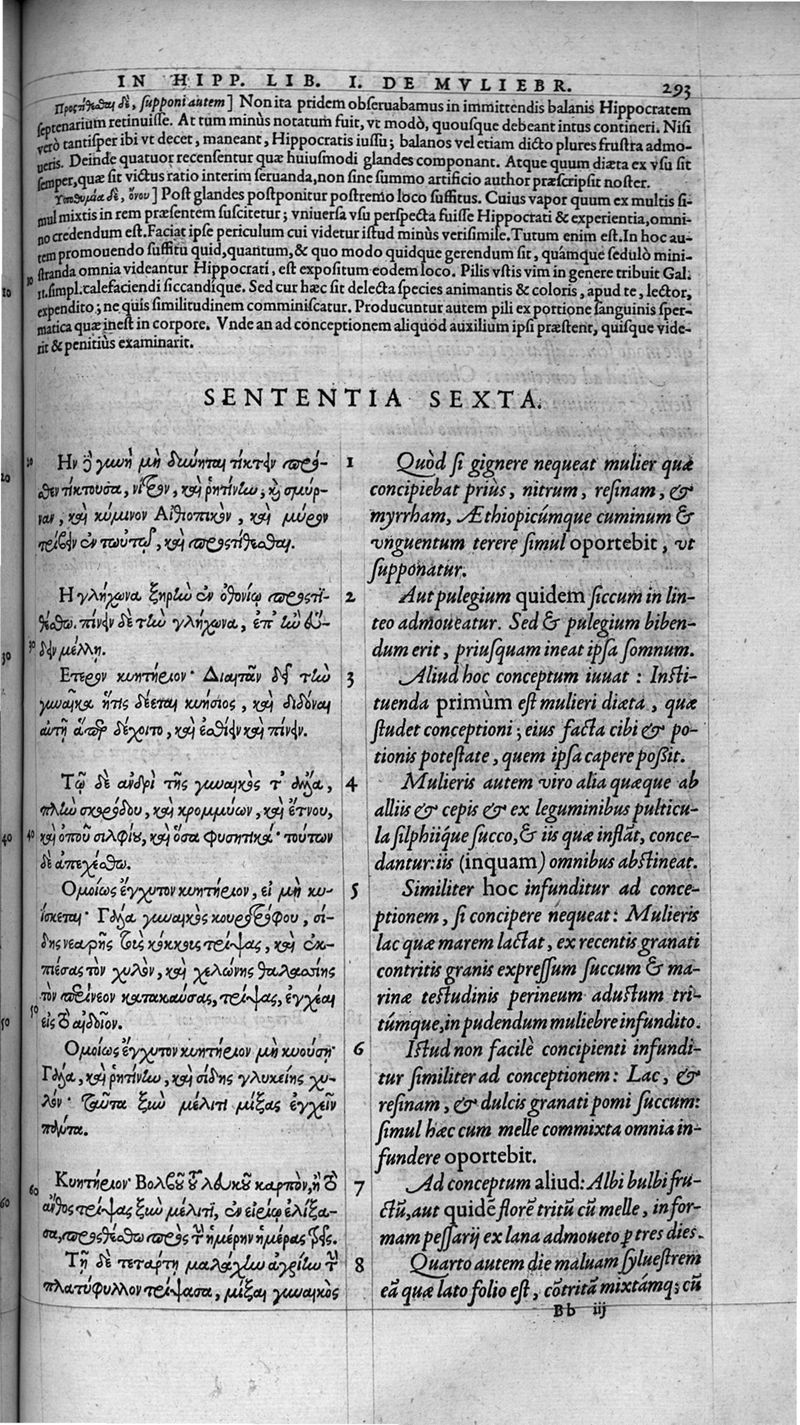 IN HIPP. LIB. I. DE MVLIEBR. 293
Προςτίθεσθαι δὲ, ſupponi autem] Non ita pridem obſeruabamus in immittendis balanis Hippocratem
ſeptenarium retinuiſſe. At tum minùs notatum fuit, vt modò, quouſque debeant intus contineri. Niſi
verò tantiſper ibi vt decet, maneant, Hippocratis iuſſu; balanos vel etiam dicto plures fruſtra admo-
ueris. Deinde quatuor recenſentur quæ huiuſmodi glandes componant. Atque quum diæta ex vſu ſit
ſemper, quæ ſit victus ratio interim ſeruanda, non ſine ſummo artificio author præſcripſit noſter.
Ὑποθυμία δὲ, ὄνου] Poſt glandes poſtponitur poſtremo loco ſuffitus. Cuius vapor quum ex multis ſi-
mul mixtis in rem præſentem ſuſcitetur; vniuerſa vſu perſpecta fuiſſe Hippocrati & experientia, omni-
no credendum eſt. Faciat ipſe periculum cui videtur iſtud minùs veriſimile. Tutum enim eſt. In hoc au-
tem promouendo ſuffitu quid, quantum, & quo modo quidque gerendum ſit, quámque ſedulò mini-
ſtranda omnia videantur Hippocrati, eſt expoſitum eodem loco. Pilis vſtis vim in genere tribuit Gal.
11. ſimpl. calefaciendi ſiccandique. Sed cur hæc ſit delecta ſpecies animantis & coloris, apud te, lector,
expendito; ne quis ſimilitudinem comminiſcatur. Producuntur autem pili ex portione ſanguinis ſper-
matica quæ ineſt in corpore. Vnde an ad conceptionem aliquod auxilium ipſi præſtent, quiſque vide-
rit & penitiùs examinarit.
SENTENTIA SEXTA.
Ην ἡ γυνὴ μὴ δύνηται τίκτειν πρό-
σθεν τίκτουσα, νίτρον, καὶ ῥητίνην, καὶ σμύρ-
ναν, καὶ κύμινον Αἰθιοπικὸν, καὶ μύρον
τρίβειν ἐν τουτῷ, καὶ προςτίθεσθαι.
Η γλήχωνα ξηρὴν ἐν ὀθονίῳ προςτι-
θέσθω. πίνειν δὲ τὴν γλήχωνα, ἐπ' ἢν εὕ-
δειν μέλλῃ.
Ετερον κυητήριον· Διαιτᾶν δεῖ τὴν
γυναῖκα ἥτις δέεται κυήσιος, καὶ διδόναι
αὐτῇ ἅπερ δέχοιτο, καὶ ἐσθίειν καὶ πίνειν.
Τῷ δὲ ἀνδρὶ τῆς γυναικὸς τἆλλα,
πλὴν σκορόδου, καὶ κρομμύων, καὶ ἔτνου,
καὶ ὀποῦ σιλφίου, καὶ ὅσα φυσητικά· τούτων
δὲ ἀπεχέσθω.
Ομοίως ἔγχυτον κυητήριον, εἰ μὴ κυ-
ΐσκεται· Γάλα γυναικὸς κουροτρόφου, σί-
δης νεαρῆς τοὺς κόκκους τρίψας, καὶ ἐκ-
πιέσας τὸν χυλὸν, καὶ χελώνης θαλασσίης
τὸν περίνεον κατακαύσας, τρίψας, ἐγχέαι
εἰς τὸ αἰδοῖον.
Ομοίως ἔγχυτον κυητήριον μὴ κυούσῃ·
Γάλα, καὶ ῥητίνην, καὶ σίδης γλυκείης χυ-
λόν· ταῦτα ξὺν μέλιτι μίξας ἐγχεῖν
πάντα.
Κυητήριον· Βολβοῦ τοῦ λευκοῦ καρπὸν, ἢ τὸ
ἄνθος τρίψας ξὺν μέλιτι, ἐν εἰρίῳ ἑλίξα-
σα, προςθέσθω πρὸς τὴν ἡμέρην ἡμέρας τρεῖς.
Τῇ δὲ τετάρτῃ μαλάχην ἀγρίην τὴν
πλατύφυλλον τρίψασα, μίξαι γυναικὸς
1 Quòd ſi gignere nequeat mulier quæ
concipiebat priùs, nitrum, reſinam, &
myrrham, Æthiopicúmque cuminum &
vnguentum terere ſimul oportebit, vt
ſupponatur.
2 Aut pulegium quidem ſiccum in lin-
teo admoueatur. Sed & pulegium biben-
dum erit, priuſquam ineat ipſa ſomnum.
3 Aliud hoc conceptum iuuat: Inſti-
tuenda primùm eſt mulieri diæta, quæ
ſtudet conceptioni; eius facta cibi & po-
tionis poteſtate, quem ipſa capere poſſit.
4 Mulieris autem viro alia quæque ab
alliis & cepis & ex leguminibus pulticu-
la ſilphiique ſucco, & iis quæ inflāt, conce-
dantur: iis (inquam) omnibus abſtineat.
5 Similiter hoc infunditur ad conce-
ptionem, ſi concipere nequeat: Mulieris
lac quæ marem lactat, ex recentis granati
contritis granis expreſſum ſuccum & ma-
rinæ teſtudinis perineum aduſtum tri-
túmque, in pudendum muliebre infundito.
6 Iſtud non facilè concipienti infundi-
tur ſimiliter ad conceptionem: Lac, &
reſinam, & dulcis granati pomi ſuccum:
ſimul hæc cum melle commixta omnia in-
fundere oportebit.
7 Ad conceptum aliud: Albi bulbi fru-
ctū, aut quidē florē tritū cū melle, in for-
mam peſſarij ex lana admoueto p tres dies.
8 Quarto autem die maluam ſylueſtrem
eā quæ lato folio eſt, cōtritā mixtámq; cū
Bb iij